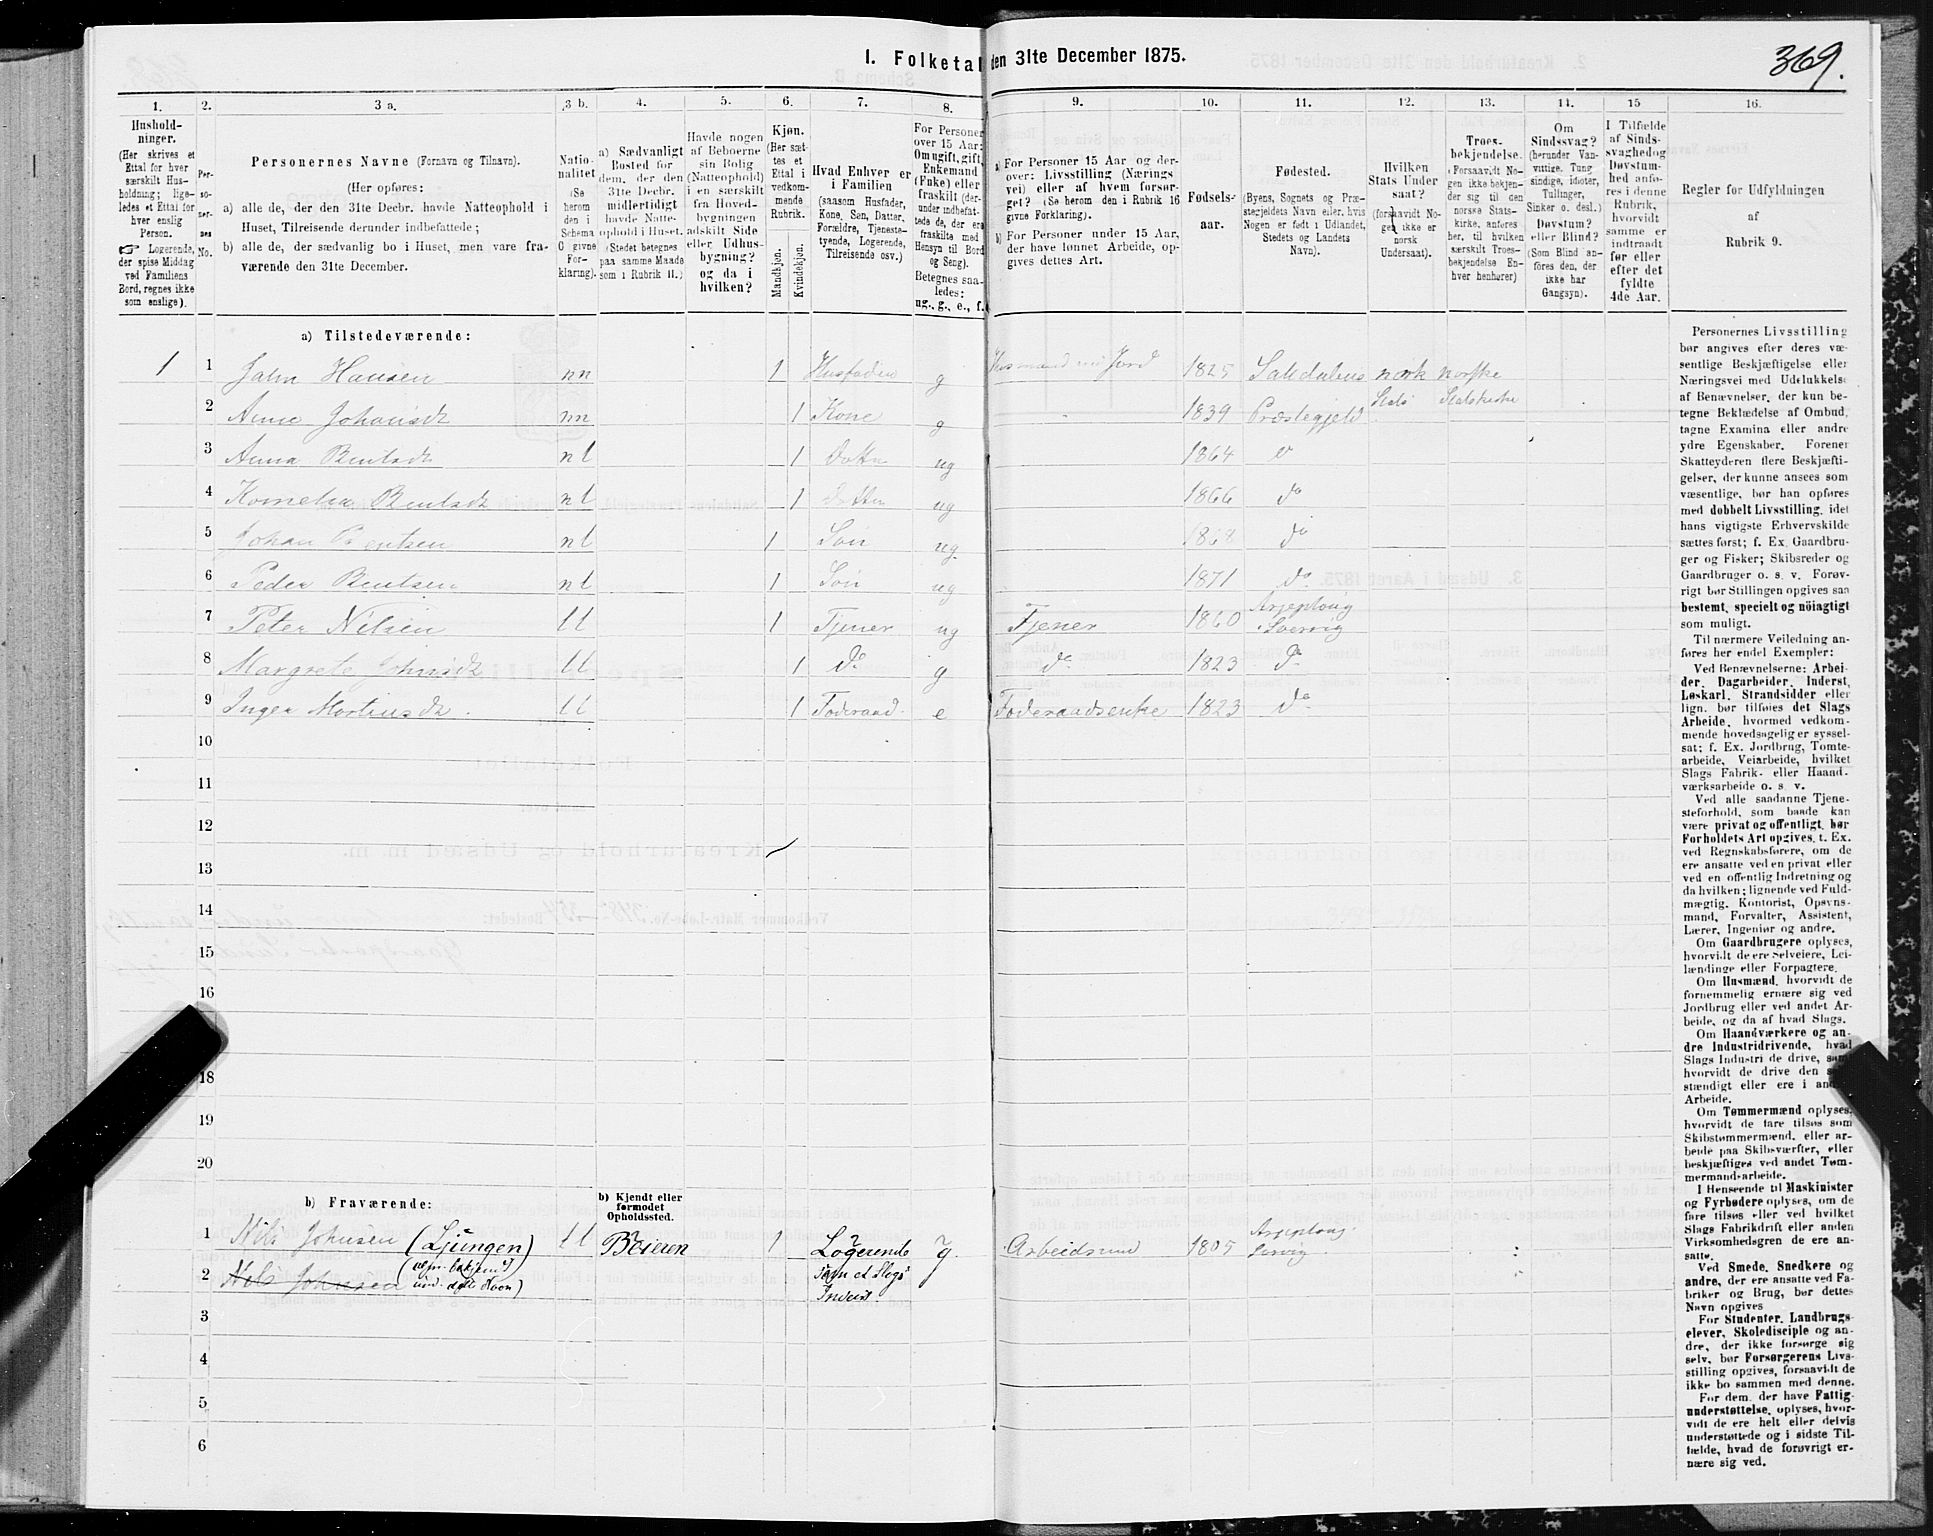 1. Folketal den 31te December 1875.
369.
1. 2. 3 a. 3 b. 4. 5. 6. 7. 8. 9. 10. 11. 12. 13. 14. 15 16.
Hushold-
ninger.
(Her skrives et
Ettal for hver
særskilt Hus-
holdning; lige-
ledes et Ettal for
hver enslig
Person.
☞ Logerende,
der spise Middag
ved Familiens
Bord, regnes ikke
som enslige).
Per-
so-
ner-
nes
No.
Personernes Navne (Fornavn og Tilnavn).
(Her opføres:
a) alle de, der den 31te Decbr. havde Natteophold i
Huset, Tilreisende derunder indbefattede;
b) alle de, der sædvanlig bo i Huset, men vare fra-
værende den 31te December.
Natio-
nalitet
(Se
herom
den i
Schema
C givne
For-
klaring).
a) Sædvanligt
Bosted for
dem, der den
31te Decbr.
midlertidigt
havde Natte-
ophold i Huset.
(Stedet betegnes
paa samme Maade
som i Rubrik 11.)
Havde nogen
af Beboerne
sin Bolig
(Natteophold)
i en særskilt
fra Hoved-
bygningen
adskilt Side
eller Udhus-
bygning?
og da i
hvilken?
Kjøn.
(Her sæt-
tes et
Ettal i
vedkom-
mende
Rubrik.
Mandkjøn.
Kvindekjøn.
Hvad Enhver er
i Familien
(saasom Husfader,
Kone, Søn, Datter,
Forældre, Tjeneste-
tyende, Logerende,
Tilreisende osv.)
For Personer
over 15 Aar:
Om ugift, gift,
Enkemand
(Enke) eller
fraskilt (der-
under indbefat-
tede de, der ere
fraskilte med
Hensyn til Bord
og Seng).
Betegnes saa-
ledes:
ug., g., e., f.
a) For Personer 15 Aar og der-
over: Livsstilling (Nærings
vei) eller af hvem forsør-
get? (Se herom den i Rubrik 16
givne Forklaring).
b) For Personer under 15 Aar,
der have lønnet Arbeide, op-
gives dettes Art.
Fødsels-
aar.
Fødested.
(Byens, Sognets og Præ-
stegjeldets Navn eller, hvis
Nogen er født i Udlandet,
Stedets og Landets
Navn).
Hvilken
Stats Under
saat?
(forsaavidt No-
gen ikke er
norsk
Undersaat).
Troes-
bekjendelse.
(Forsaavidt No-
gen ikke bekjen-
der sig til den
norske Stats-
kirke, anføres
her, til hvilken
særskilt Troes-
bekjendelse En-
hver henhører)
Om
Sindssvag?
(herunder Van-
vittige, Tung
sindige, Idioter,
Tullinger,
Sinker o. desl.)
Døvstum?
eller Blind?
(Som Blind an-
føres den, der
ikke har
Gangsyn).
I Tilfælde
af Sinds-
svaghed og
Døvstum-
hed anfø-
res i denne
Rubrik,
hvorvidt
samme er
indtraadt
før eller
efter det
fyldte
4de Aar.
Regler for Udfyldningen
af
Rubrik 9.
a) Tilstedeværende:
1 1 John Hansen nn 1 Husfader g Husmand med Jord 1825 Saltdalens norsk norske
2 Anne Johansdt nn 1 Kone g 1839 Præstegjeld Stats Statskirke
3 Anna Bentsdt nl 1 Datter ug 1864 do
4 Kornelia Bentsdt nl 1 Datter ug 1866 do
5 Johan Bentsen nl 1 Søn ug 1868 do
6 Peder Bentsen nl 1 Søn ug 1871 do
7 Peter Nilsen ll 1 Tjener ug Tjener 1860 Arjeploug Sverrig
8 Margrete Johnsdt ll 1 do g do 1823 do
9 Inger Mortensdt ll 1 Føderaad. e Føderaadsenke 1823 do
10
11
12
13
14
15
16
18
19
20
b) Fraværende:
b) Kjendt eller
formodet
Opholdssted.
1 Nils Johnsen (Ljungen) ll Beieren 1 Logerende g. Arbeidsmd 1805 Arjeploug Sverig
2 Nils Johnsen (alm. bekjendt und. dette Navn) som et Slags Inderst.
3
4
5
6
Personernes Livsstilling
bør angives efter deres væ-
sentlige Beskjæftigelse eller
Næringsvei med Udelukkelse
af Benævnelser, der kun be-
tegne Beklædelse af Ombud,
tagne Examina eller andre
ydre Egenskaber. Forener
Skatteyderen flere Beskjæfti-
gelser, der kunne ansees som
væsentlige, bør han opføres
med dobbelt Livsstilling, idet
hans vigtigste Erhvervskilde
sættes først; f. Ex. Gaardbru-
ger og Fisker; Skibsreder og
Gaardbruger o. s. v. Forøv-
rigt bør Stillingen opgives saa
bestemt, specielt og nöiagtigt
som muligt.
Til nærmere Veiledning an-
føres her endel Exempler:
Ved Benævnelserne: Arbei-
der, Dagarbeider, Inderst,
Løskarl, Strandsidder eller
lign. bør tilføies det Slags
Arbeide, hvormed vedkom-
mende hovedsagelig er syssel-
sat; f. Ex. Jordbrug, Tomte-
arbeide, Veiarbeide, hvilket
Slags Fabrik- eller Haand-
værksarbeide o. s. v.
Ved alle saadanne Tjene-
steforhold, som baade kan
være privat og offentligt, bør
Forholdets Art opgives, t. Ex.
ved Regnskabsførere, om de
ere ansatte ved en privat eller
ved en offentlig Indretning og
da hvilken; lignende ved Fuld-
mægtig, Kontorist, Opsyns-
mand, Forvalter, Assistent,
Lærer, Ingeniør og andre.
Om Gaardbrugere oplyses,
hvorvidt de ere Selveiere, Lei-
lændinge eller Forpagtere.
Om Husmænd, hvorvidt de
fornemmelig ernære sig ved
Jordbrug eller ved andet Ar-
beide, og da af hvad Slags.
Om Haandværkere og an-
dre Industridrivende, hvad
Slags Industri de drive, samt
hvorvidt de drive den selv-
stændigt eller ere i andres
Arbeide.
Om Tømmermænd oplyses,
hvorvidt de fare tilsøs som
Skibstømmermænd, eller ar-
beide paa Skibsværfter, eller
beskjæftiges ved andet Tøm-
mermandsarbeide.
I Henseende til Maskinister
og Fyrbødere oplyses, om de
fare tilsøs eller ved hvilket
Slags Fabrikdrift eller anden
Virksomhedsgren de ere an-
satte.
Ved Smede, Snedkere og
andre, der ere ansatte ved Fa-
briker og Brug, bør dettes
Navn opgives
For Studenter, Landbrugs-
elever, Skoledisciple og an-
dre, der ikke forsørge sig
selv, bør Forsørgerens Livs-
stilling opgives, forsaavidt de
ikke bo sammen med denne.
For dem, der have Fattig-
understøttelse, oplyses, hvor-
vidt de ere helt eller delvis
understøttede og i sidste Til-
fælde, hvad de forøvrigt er-
nære sig ved.